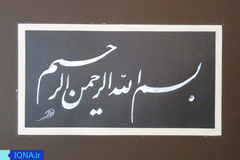 بسم الله الرحمن الرحيم
IQNA.ir